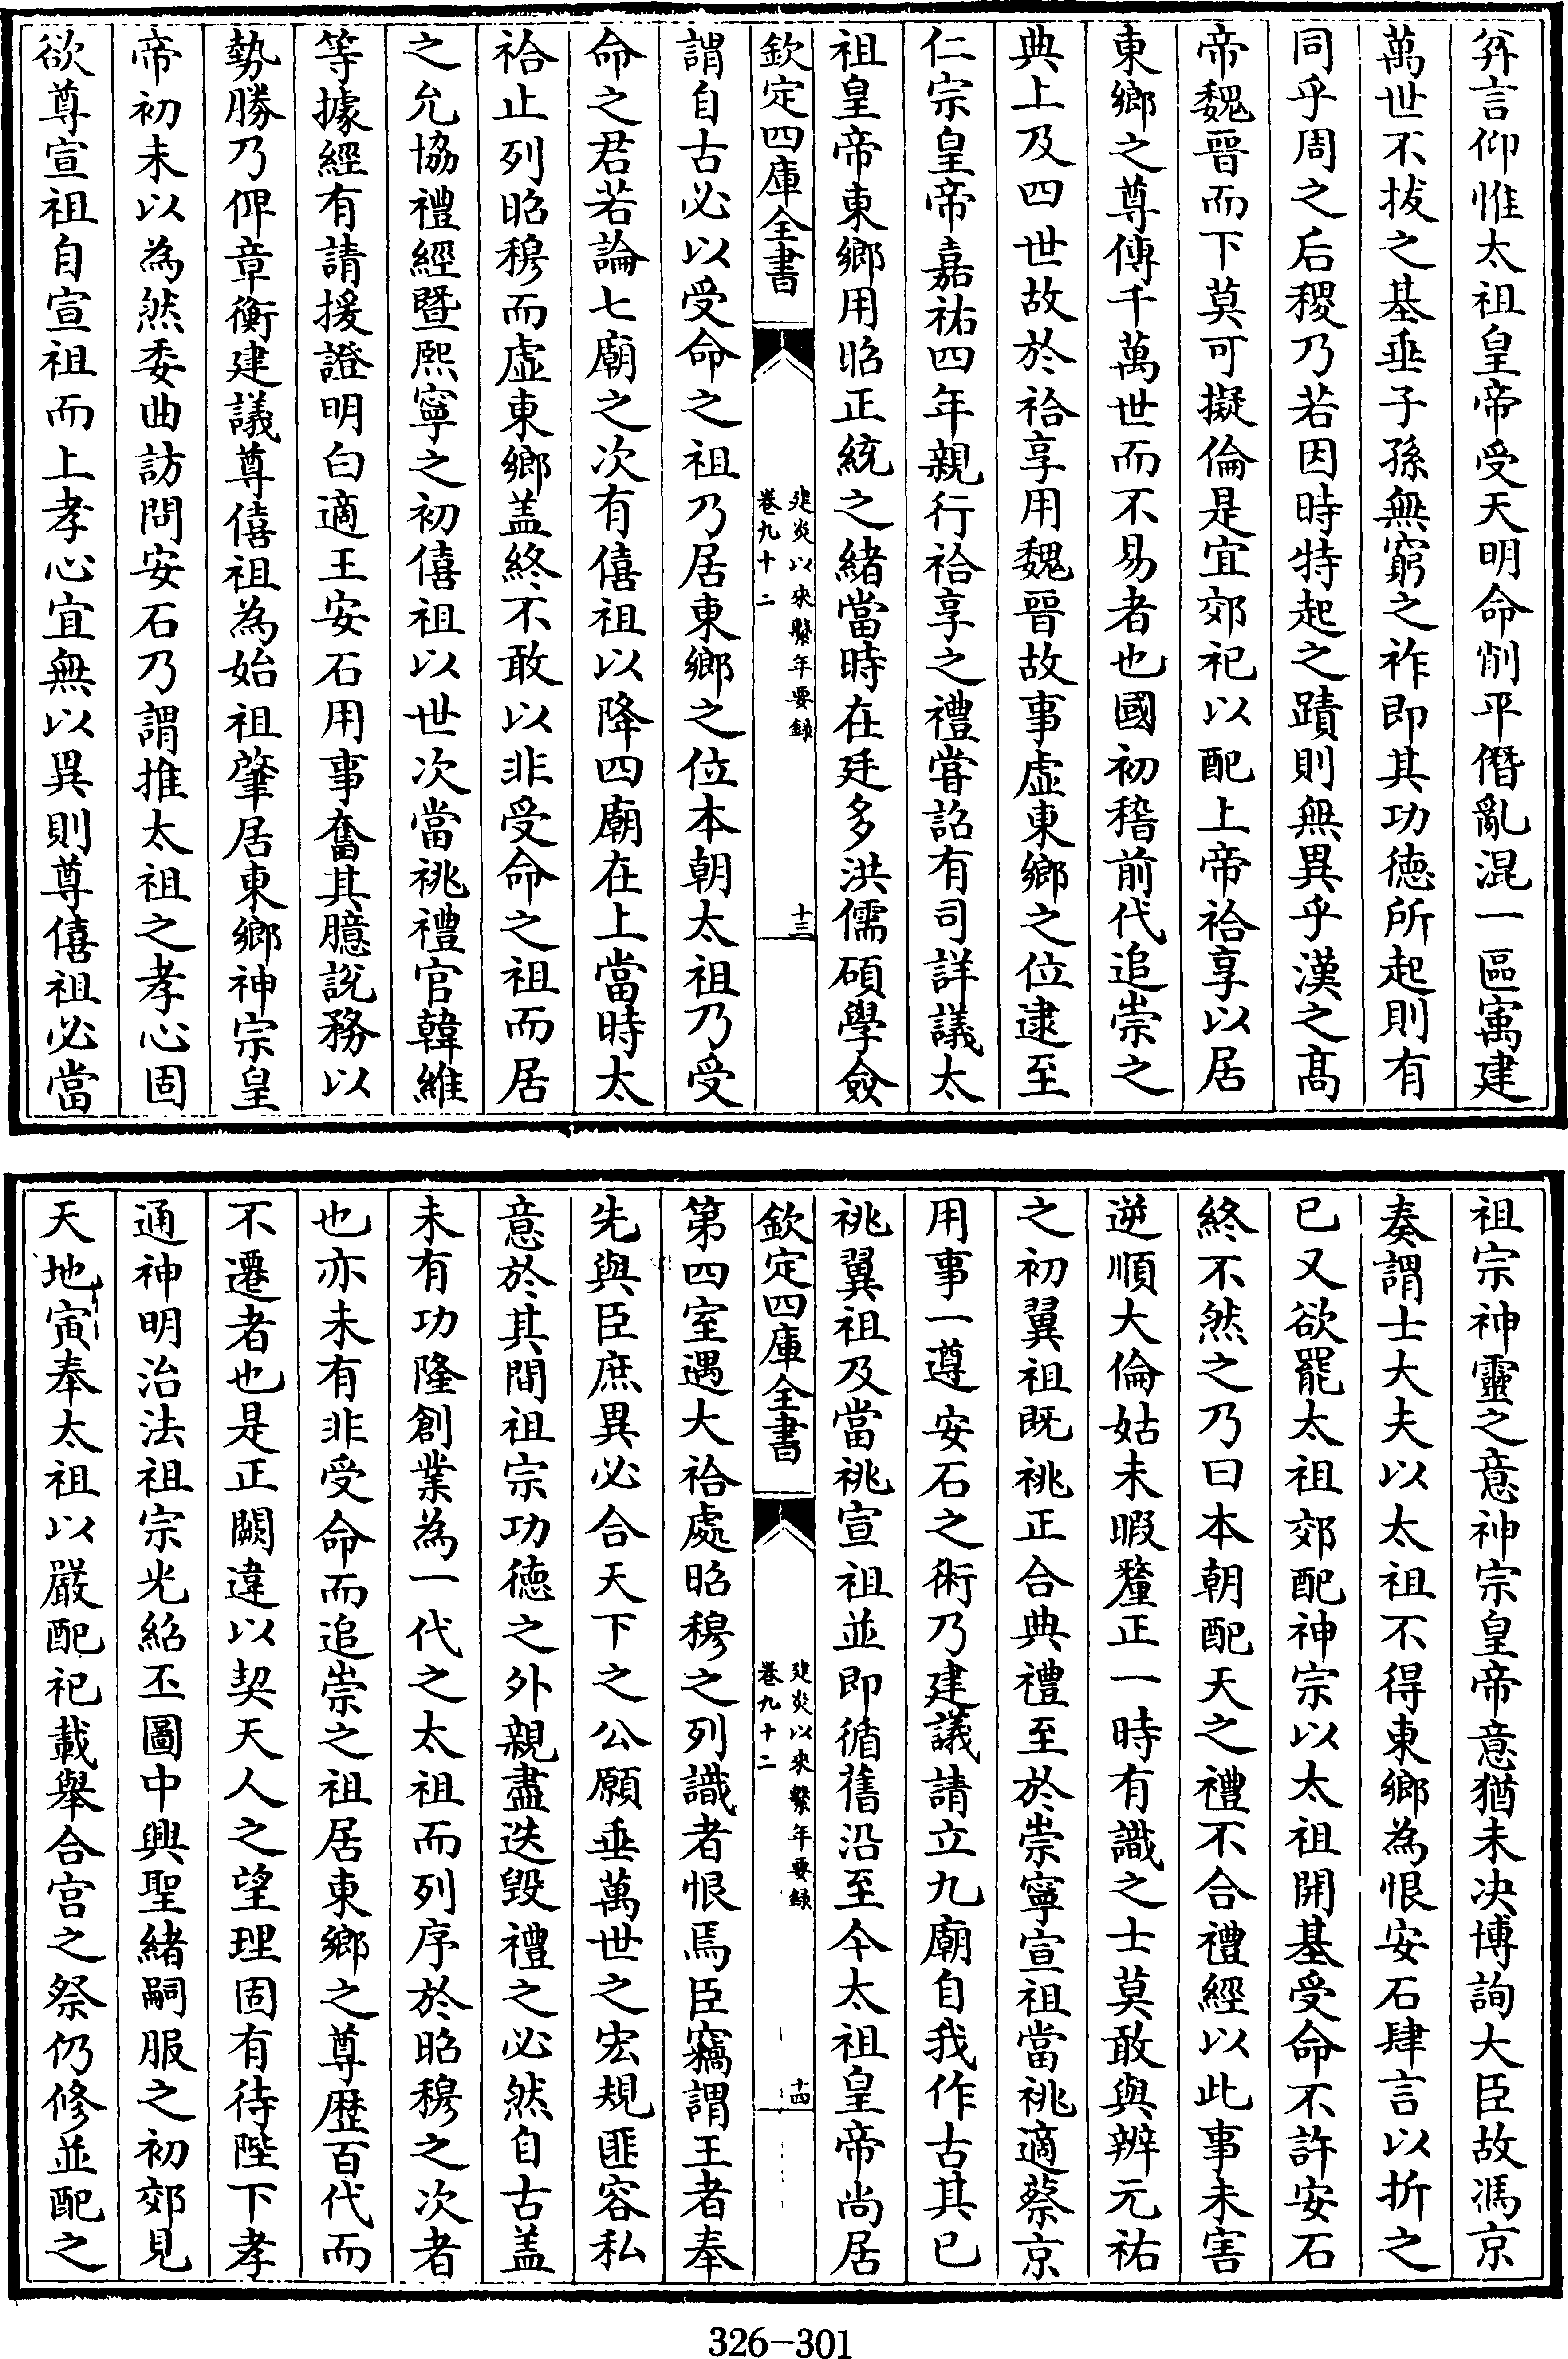 弁言仰惟太祖皇帝受天明命削平僭亂混一區㝢建
萬世不拔之基垂子孫無窮之祚即其功德所起則有
同乎周之后稷乃若因時特起之蹟則無異乎漢之髙
帝魏晉而下莫可擬倫是宜郊祀以配上帝祫享以居
東鄉之尊傳千萬世而不易者也國初稽前代追崇之
典上及四世故於祫享用魏晉故事虛東鄉之位逮至
仁宗皇帝嘉祐四年親行祫享之禮嘗詔有司詳議太
祖皇帝東鄉用昭正統之緒當時在廷多洪儒碩學僉
欽定四庫全書
建炎以來繫年要錄
卷九十二
十三
謂自古必以受命之祖乃居東鄉之位本朝太祖乃受
命之君若論七廟之次有僖祖以降四廟在上當時太
祫止列昭穆而虛東鄉盖終不敢以非受命之祖而居
之允協禮經暨熙寧之初僖祖以世次當祧禮官韓維
等據經有請援證明白適王安石用事奮其臆說務以
勢勝乃俾章衡建議尊僖祖為始祖肇居東鄉神宗皇
帝初未以為然委曲訪問安石乃謂推太祖之孝心固
欲尊宣祖自宣祖而上孝心宜無以異則尊僖祖必當
祖宗神靈之意神宗皇帝意猶未决博詢大臣故馮京
奏謂士大夫以太祖不得東鄉為恨安石肆言以折之
已又欲罷太祖郊配神宗以太祖開基受命不許安石
終不然之乃曰本朝配天之禮不合禮經以此事未害
逆順大倫姑未暇釐正一時有識之士莫敢與辨元祐
之初翼祖既祧正合典禮至於崇寧宣祖當祧適蔡京
用事一遵安石之術乃建議請立九廟自我作古其已
祧翼祖及當祧宣祖並即循舊沿至今太祖皇帝尚居
欽定四庫全書
建炎以來繫年要錄
卷九十二
十四
第四室遇大祫處昭穆之列識者恨焉臣竊謂王者奉
先與臣庶異必合天下之公願垂萬世之宏規匪容私
意於其間祖宗功德之外親盡迭毀禮之必然自古盖
未有功隆創業為一代之太祖而列序於昭穆之次者
也亦未有非受命而追崇之祖居東鄉之尊歴百代而
不遷者也是正闕違以契天人之望理固有待陛下孝
通神明治法祖宗光紹丕圖中興聖緒嗣服之初郊見
天地寅奉太祖以嚴配祀載舉合宫之祭仍修並配之
326-301